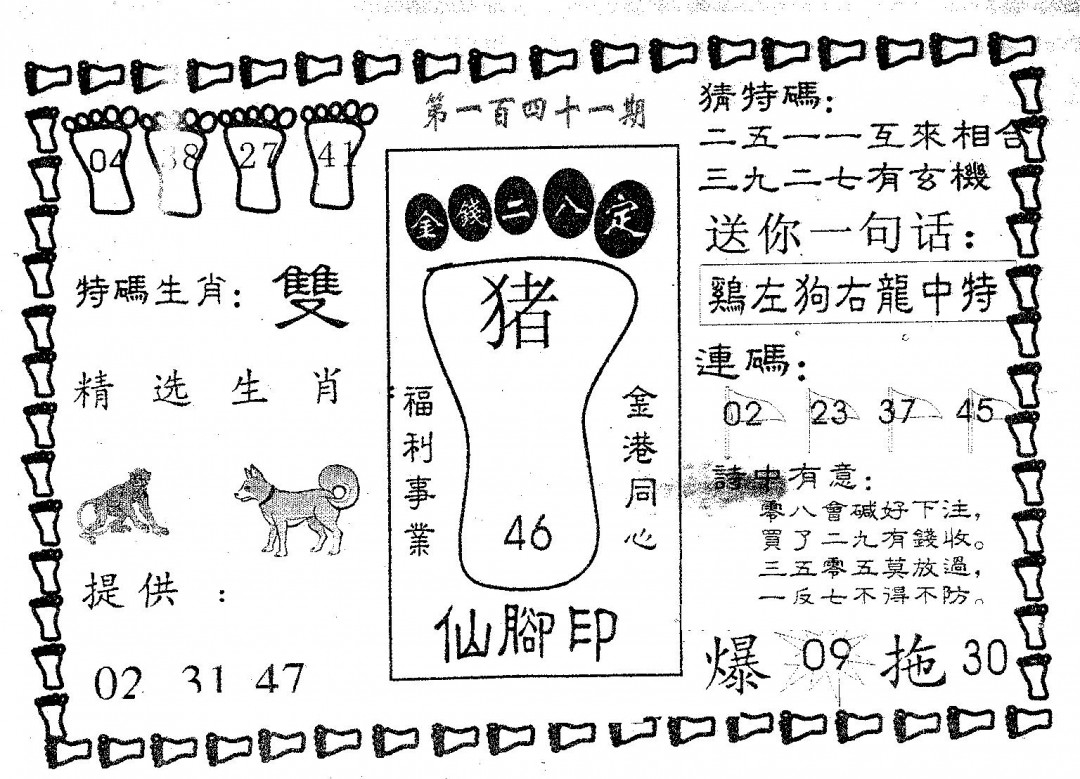 第一百四十一期
04 38 27 41
特碼生肖：雙
精选生肖
提供：
02 31 47
金錢二八定
猪
福利事業
金港同心
46
仙腳印
猜特碼：
二五一一互來相合
三九二七有玄機
送你一句话：
鷄左狗右龍中特
連碼：
02 23 37 45
詩中有意：
零八會碱好下注，
買了二九有錢收。
三五零五莫放過，
一反七不得不防。
爆 09 拖 30